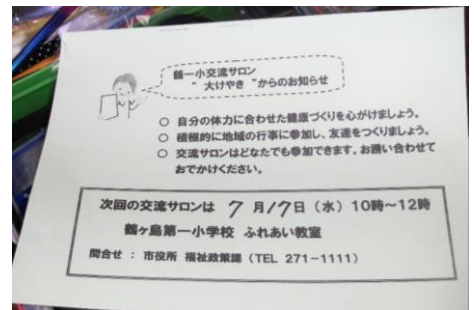 鶴一小交流サロン
"大けやき"からのお知らせ
○ 自分の体力に合わせた健康づくりを心がけましょう。
○ 積極的に地域の行事に参加し、友達をつくりましょう。
○ 交流サロンはどなたでも参加できます。お誘い合わせて
おでかけください。
次回の交流サロンは 7 月17日（水）10時～12時
鶴ヶ島第一小学校 ふれあい教室
問合せ：市役所 福祉政策課（TEL 271-1111）